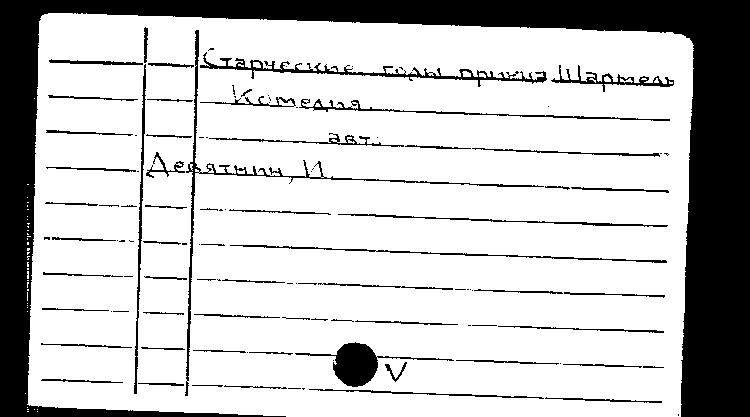 Старческие годы принца Шармель
Комедия.
авт.
Девяткин, И.
V